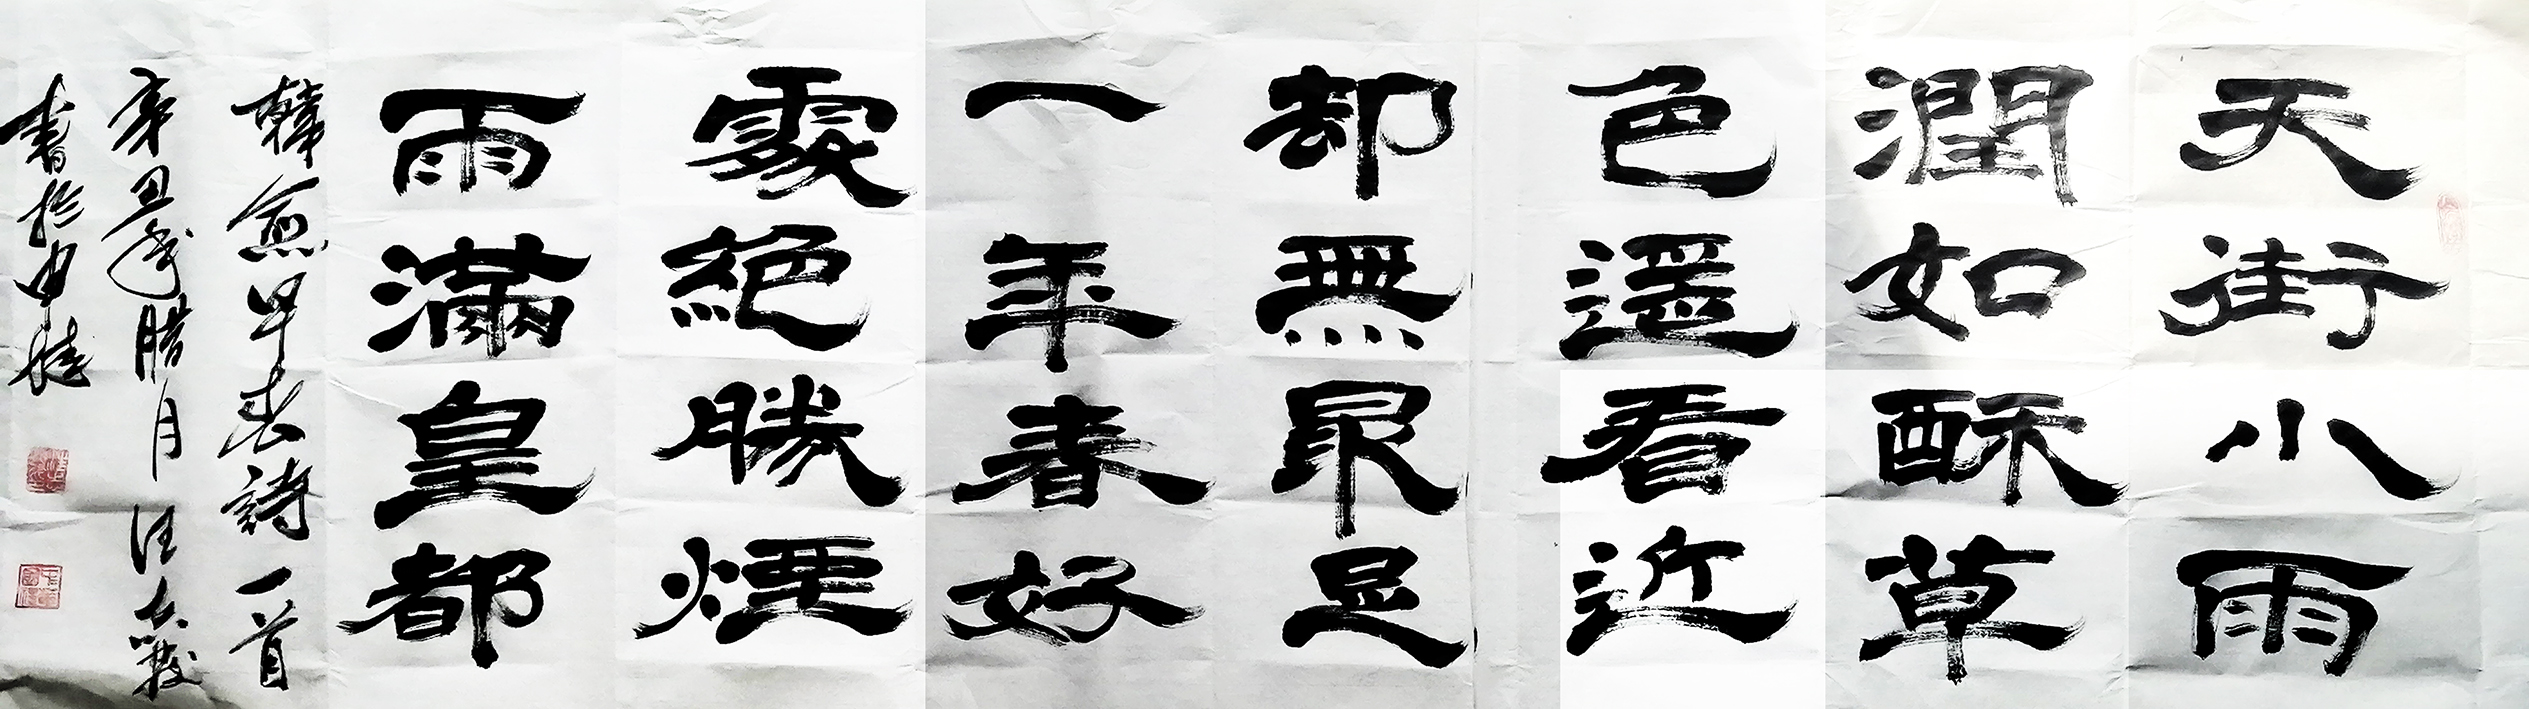 天街小雨
潤如酥草
色還看近
却無最是
一年春好
處絕勝煙
雨滿皇都
韓愈早春詩一首
辛丑年腊月汪
書於